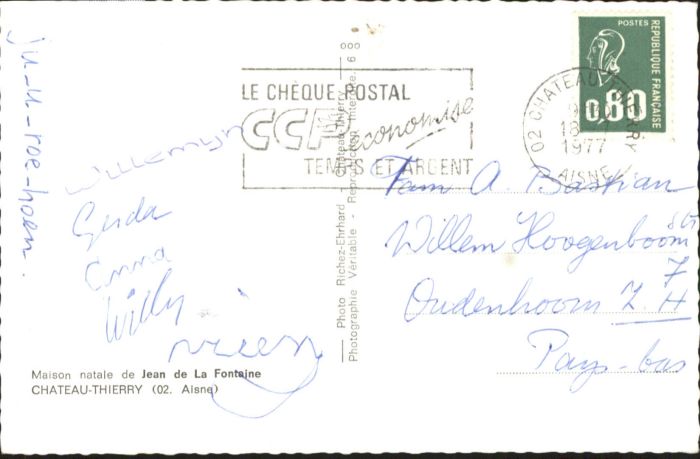 ju-u-roe-hoen.
Willemijn
Gerda
Emma
Willy
Maison natale de Jean de La Fontaine
CHATEAU-THIERRY (02. Aisne)
Photo Richez-Ehrhard - Chateau-Thierry
Photographie Véritable - Reproduction Interdite. 6 000
LE CHÈQUE POSTAL
CCP économise
TEMPS ET ARGENT
02 CHATEAU THIERRY
18
1977
AISNE
POSTES
REPUBLIQUE FRANÇAISE
0,80
Fam A. Bastian
Willem Hoogenboom
7
Oudenhoorn Z.H
Pays-bas